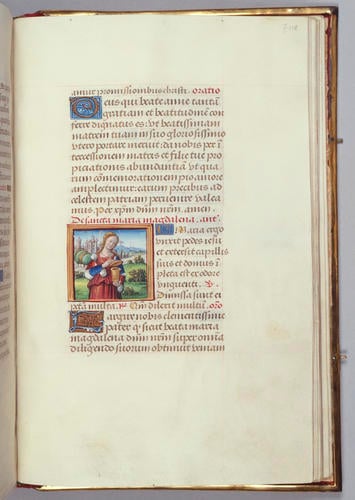 amur promissionibus christi. oratio
Deus qui beate anne tantā
gratiam et beatitudinē con
ferre dignatus es: vt beatissimam
matrem tuam in suo gloriosissimo
vtero portare meruit: da nobis per ī
tercessionem matris et filie tue pro
piciationis abundantiā vt qua
rum cōmemorationem pio amore
amplectimur: earum precibus ad
celestem patriam peruenire valea
mus. per xpm dnm nrm. amen.
De sancta maria magdalena. ant.
Maria ergo
vnxit pedes iesu
et extersit capillis
suis et domus ī
pleta est ex odore
vnguenti. V.
Dimissa sunt ei
pctā multa. R. Qm dilexit multū. oro
Largire nobis clementissime
pater q sicut beata maria
magdalena dnm nrm super omnia
diligendo suorum obtinuit veniam